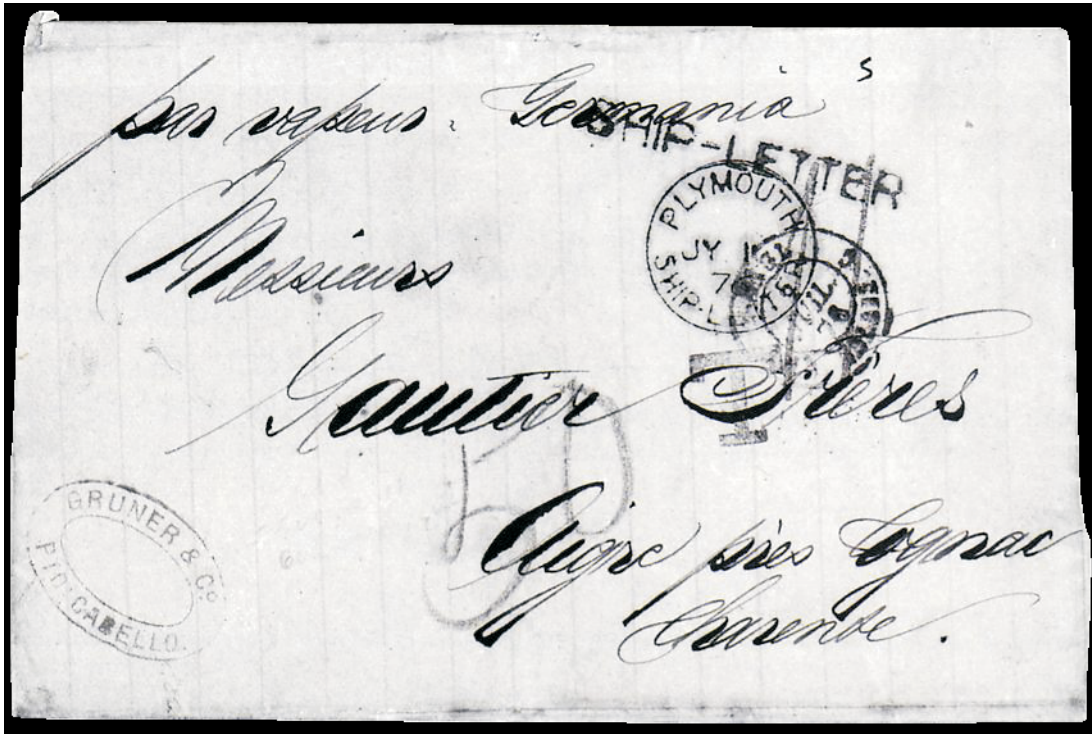 s
par vapeur. Germania
SHIP-LETTER
PLYMOUTH
JY
7
SHIP-LETTER
Messieurs
Gautier Frères
T
50
Aigre près Cognac
Charente.
GRUNER & Co.
PTO. CABELLO.